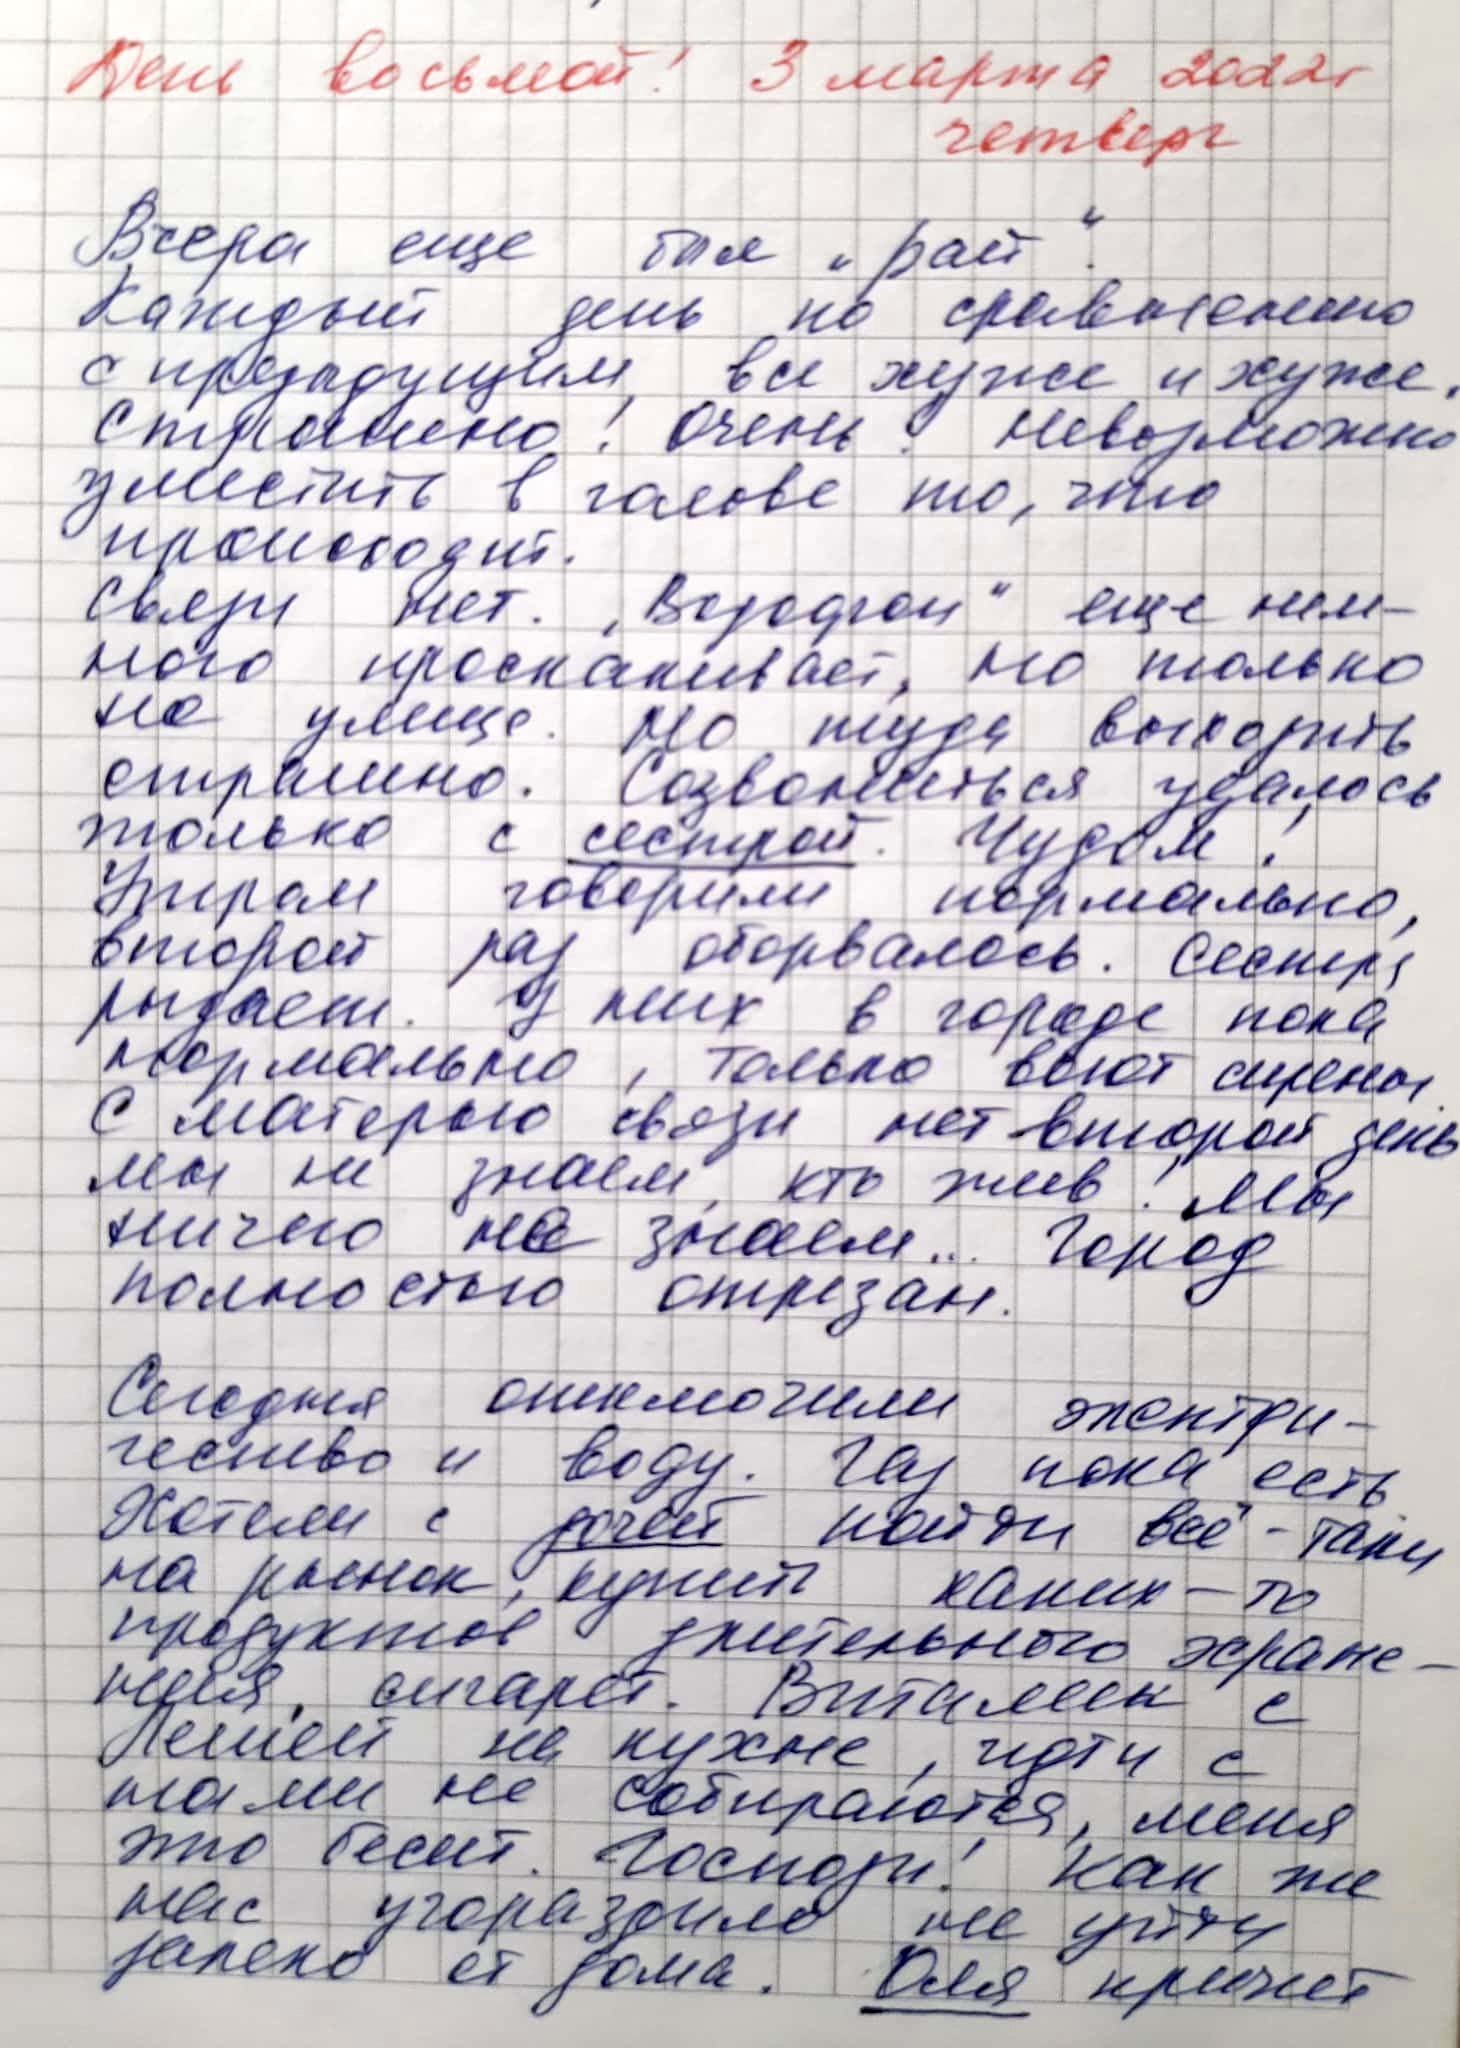 День восьмой! 3 марта 2022г
четверг
Вчера еще был „рай“.
Каждый день по сравнению
с предыдущим, все хуже и хуже.
Страшно! Очень! Невозможно
уместить в голове то, что
происходит.
Связи нет. „Водофон“ еще нем-
ного проскакивает, но только
на улице. Но туда выходить
страшно. Созвониться удалось
только с сестрой. Чудом!
Утром говорили нормально,
второй раз оборвалось. Сестра
рыдает. У них в городе пока
нормально, только воют сирены.
С матерью связи нет второй день
мы не знаем, кто жив! Мы
ничего не знаем... Город
полностью отрезан.
Сегодня отключили электри-
чество и воду. Газ пока есть
Хотели с дочей пойти всё-таки
на рынок, купить каких-то
продуктов длительного хране-
ния, сигарет. Виталик с
Лешей на кухне, идти с
нами не собираются, меня
это бесит. Господи! Как же
нас угораздило не уйти
далеко от дома. Оля кричит